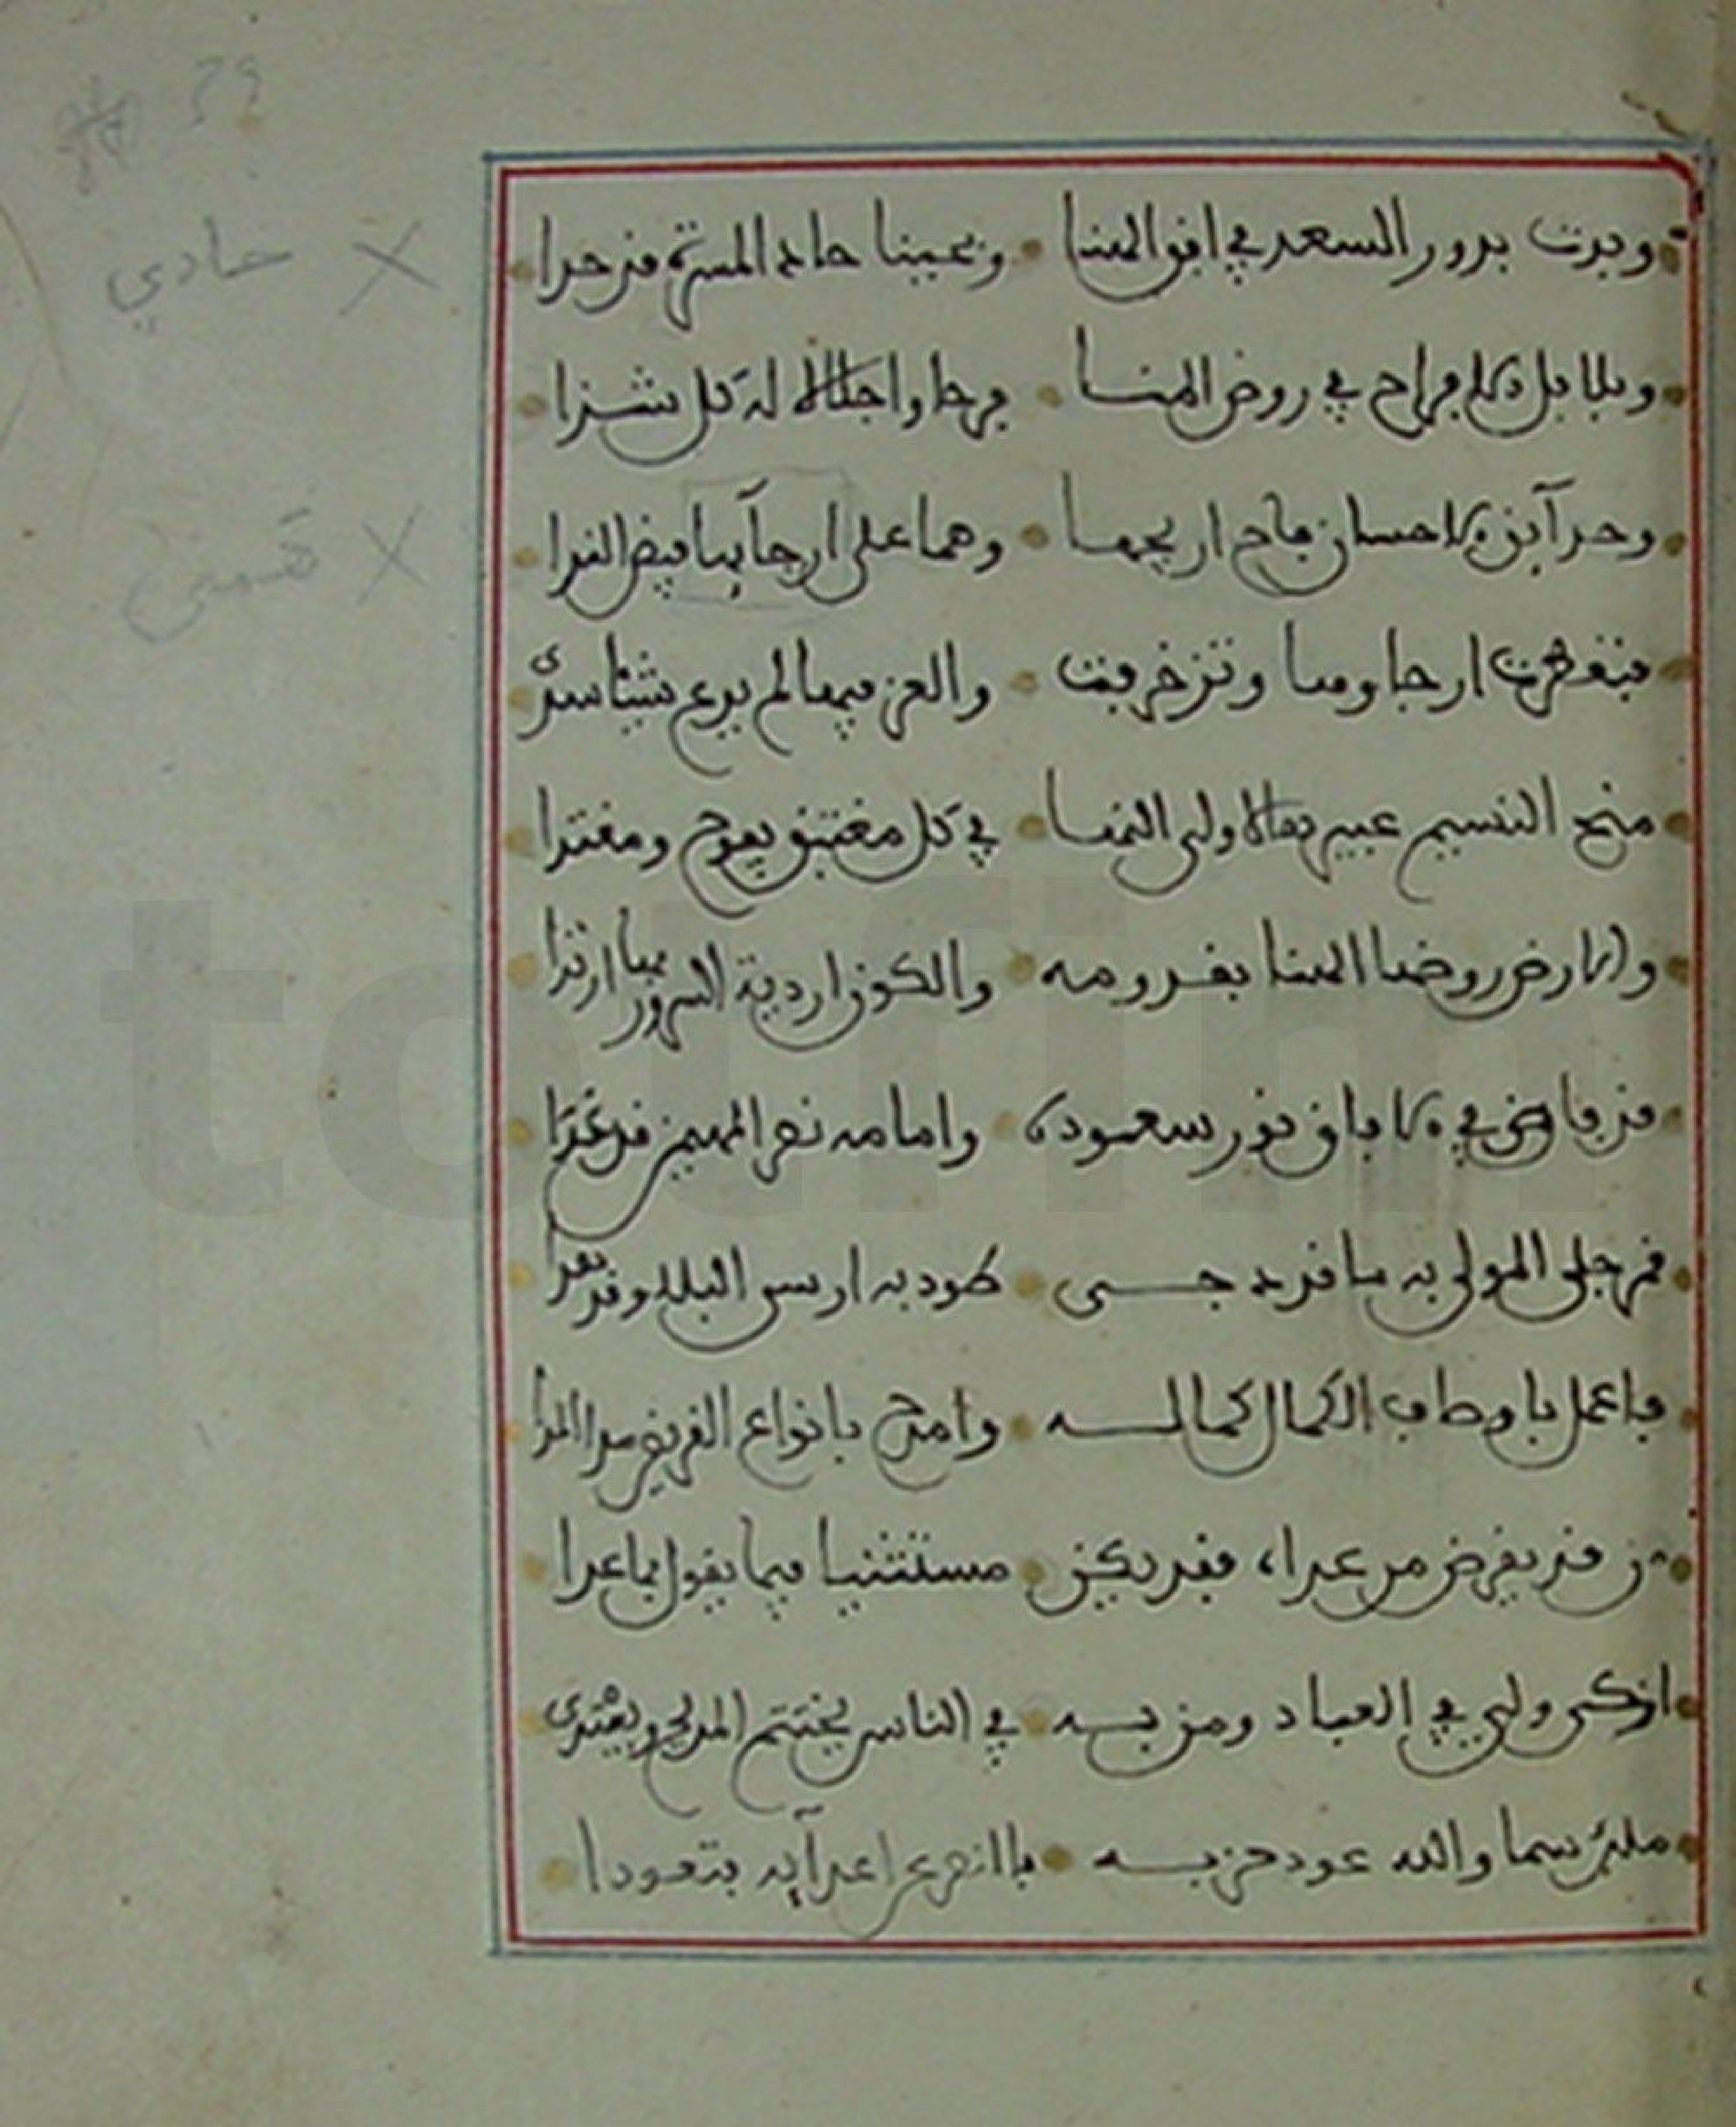 وبدت بدور السعد في افق الهنا وبحينا حادي المسرة قد حدا
وبلابل الافراح في روض الهنا فرحا واجلالا له كل شدا
وحدآئق الاحسان فاح اريجها وهما على ارجآئها فيض الندا
فتعطرت ارجاوها وتزخرفت والعز فيها لم يدع شيئا سدى
منح النسيم عبير هالاولى النها في كل مغتبق يفوح ومغتدا
والارض روضها الهنا بقدومه والكون اردية السرور بها ارتدا
من فاض في الافاق نور سعوده وامامه نصر المهيمن قد غدا
قمر جلى المولى به ما قد دجى طود به ارسى البلاد وقد
فاعمل باوصاف الكمال كماله وامدح بانواع القريض سدا المدا
من قد يقرض من عداه فقد يكن مستثنيا فيما يقول بما عدا
ازكى ولي في العباد ومن به في الناس يختتم المديح ويبتدى
ملك سما والله عود حزبه بالنصر اعدآئه فتعودا
حادي
59